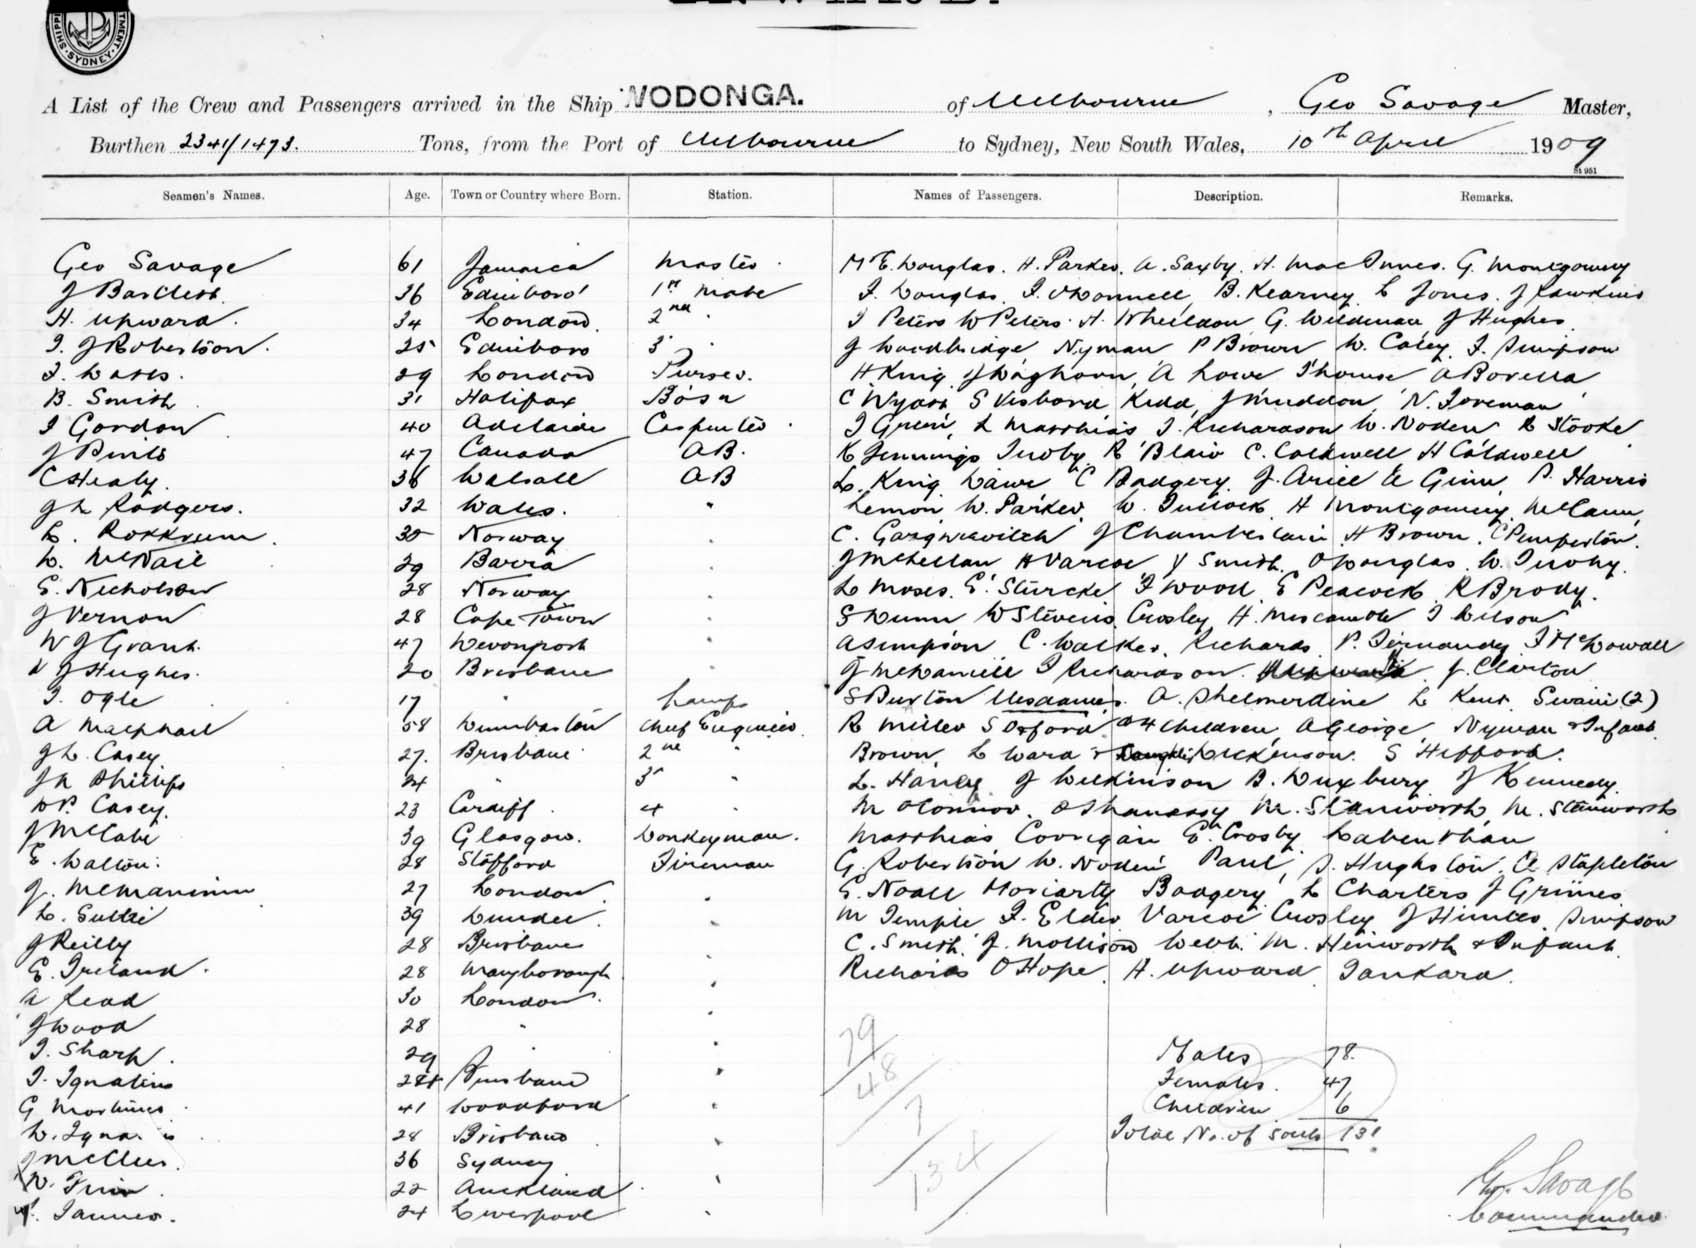 SYDNEY
A List of the Crew and Passengers arrived in the Ship WODONGA. of Melbourne, Geo Savage Master,
Burthen 2341/1473. Tons, from the Port of Melbourne to Sydney, New South Wales, 10th April 1909
St 951
Seamen's Names. Age. Town or Country where Born. Station. Names of Passengers. Description. Remarks.
Geo Savage 61 Jamaica Master M E. Douglas. H. Parker. A. Saxby. H. MacInnes. G. Montgomery
J Bartlett 36 Edinboro' 1st Mate J. Douglas. J. O'Donnell, B. Kearney L Jones. J Hawkins
H. Upward. 34 London 2nd " J Peters W Peters. H. Wheildon G. Weldman J Hughes
J. J Robertson. 25 Edinboro 3rd " J Woodbridge Nyman P Brown W. Casey J. Simpson
29 London Purser. H King J Waghorn, A Lowe Thomas A Borella
B. Smith 31 Halifax Bosn C Wyatt S Kidd, N. Foreman
J Gordon 40 Adelaide Carpenter. J Green, L Matthias J. Richardson W. Noden R Stooke
47 Canada A.B. R Jennings Tuohy R Blair C. Caldwell H Caldwell
C Healy. 36 Walsall AB L. King C Badgery. J. Ariell Ginn P. Harris
J L Rodgers. 32 Wales. " Lemon W. Parker. W. Tullock H Montgomery McCann
30 Norway " C. J Chamberlain H Brown. C Pemberton.
L. McNeil 29 Barra " J McLellan H Varcoe J Smith. O Douglas. W. Tuohy.
E. Nicholson 28 Norway " L Moses. E. Sturcke F Wood E Peacock R Brody.
J Vernon 28 Cape Town " S Dunn W Stevens Crosley H. J Wilson
W J Grant. 47 Devonport " A Simpson C. Walker. Richards. P. J McDowall
J Hughes. 20 Brisbane " J McDaniell J Richardson J. Clarton
J. Ogle 17 " Lamps S Buxton Mesdames. A. Shelmerdine L Kent. Swain (2)
A Macphail 58 Dumbarton Chief Engineer. R Miller S Oxford & 4 Children A George Nyman & Infant.
J L. Casey. 27. Brisbane 2nd " Brown, L Ward & Dickenson. S Hifford.
J R Phillips 24 " 3rd " L. J Wilkinson B. Duxbury J Kennedy
P. Casey. 23 Cardiff 4 " M O'Connor. O'Shanassy M. Stanworth, M. Stanworth
J McCabe 39 Glasgow. Donkeyman. Matthias Corrigan E. Crosby
E. Walton. 28 Stafford Fireman G. Robertson W. Noden Paul, S. Hughston. A Stapleton
J. McManimin 27 London " E. Noall Moriarty Badgery L Charters J Grimes
L. Suttie 39 Dundee " M Temple J. Elder Varcoe Crosley J Simpson
J Reilly 28 Brisbane " C. Smith J. Mollison Webb. M. Heinworth & Infant.
E. Ireland. 28 Maryborough " Richards O Hope. H. Upward Tankard.
A Read 30 London "
J Wood 28 " "
J. Sharp. 29 " "
J. Ignatius 28 Brisbane "
G Mortimer 41 Woodford "
28 Brisbane "
36 Sydney "
22 Auckland "
24 Liverpool "
79
48
7
134
Males 78.
Females. 47
Children 6
Total No. of Souls 131
Geo. Savage
Commander